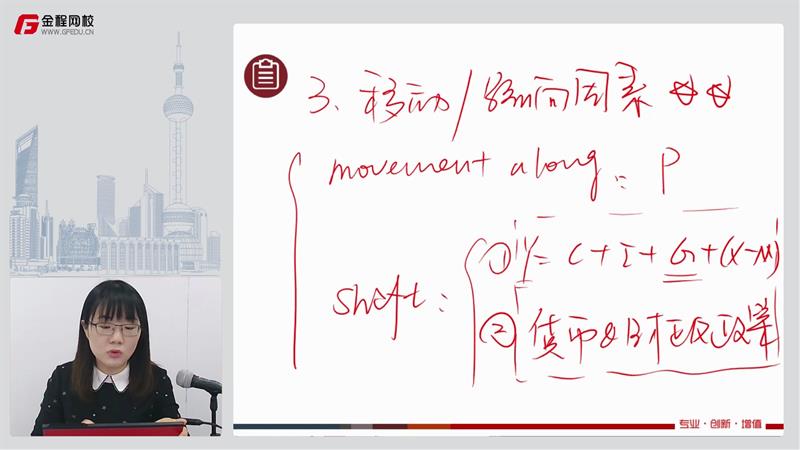 金程网校
WWW.GFEDU.CN
3、移动/影响因素 ☆☆
movement along: P
shift:
① Y = C + I + G + (X-M)
② 货币&财政政策
专业·创新·增值